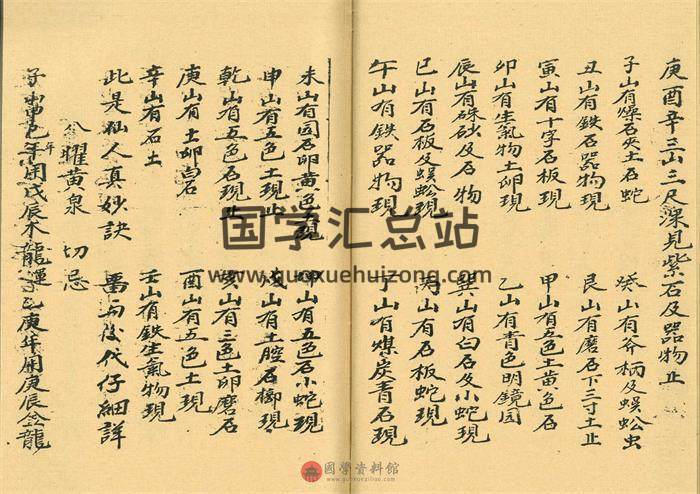 庚酉辛三山三尺深見紫石及器物止
子山有燥石夾土石蛇
癸山有斧柄及蜈蚣虫
丑山有鉄石器物現
艮山有磨石下三寸土止
寅山有十字石板現
甲山有五色土黄色石
卯山有生氣物土卵現
乙山有青色明鏡園
辰山有硃砂及石物
巽山有白石及小蛇現
巳山有石板及蜈蚣現
丙山有石板蛇現
午山有鉄器物現
丁山有煤炭青石現
未山有园石卵黄色土現
坤山有五色石小蛇現
申山有五色土現止
戌山有土腔石榔現
乾山有五色石現止
亥山有三色土卵磨石
庚山有土卵白石
酉山有五色土現
辛山有石土
壬山有鉄生氣物現
此是仙人真妙訣
畱与後代仔細詳
八曜黄泉 切忌
年用戊辰木龍運
庚年用庚辰金龍
国学汇总站
www.guoxuehuizong.com
國學資料館
www.guoxueziliao.com